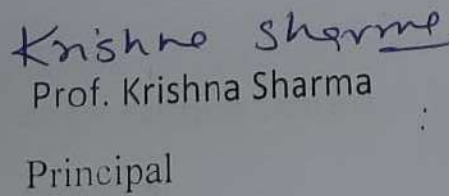 Krishna Sharma
Prof. Krishna Sharma
:
Principal